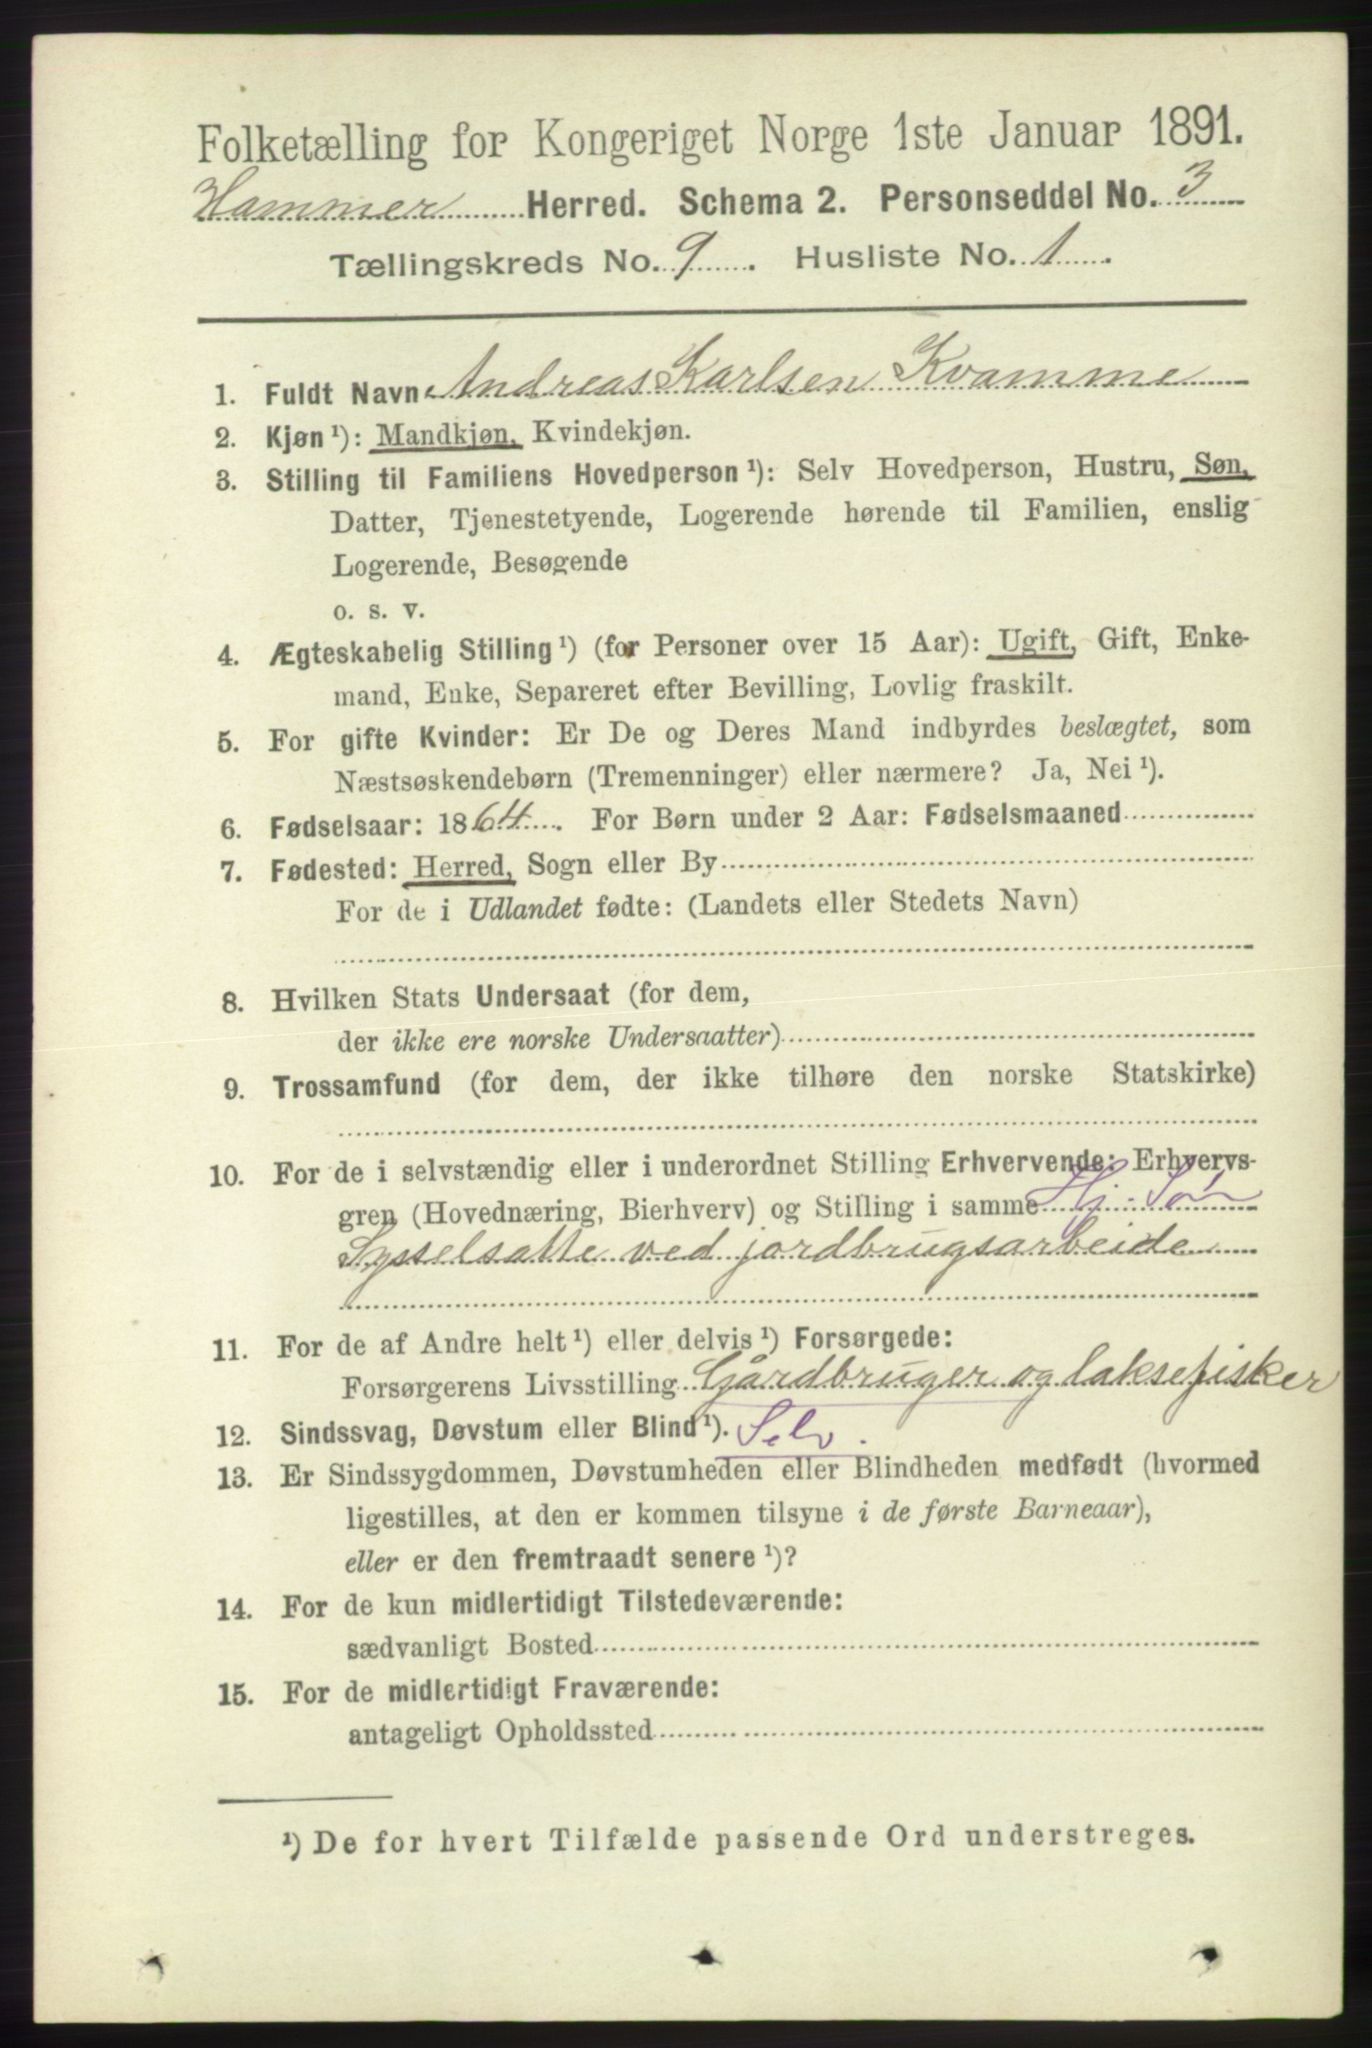 Folketælling for Kongeriget Norge 1ste Januar 1891.
Hammer Herred. Schema 2. Personseddel No. 3
Tællingskreds No. 9. Husliste No. 1.
1. Fuldt Navn Andreas Karlsen Kvamme
2. Kjøn ¹): Mandkjøn, Kvindekjøn.
3. Stilling til Familiens Hovedperson ¹): Selv Hovedperson, Hustru, Søn,
Datter, Tjenestetyende, Logerende hørende til Familien, enslig
Logerende, Besøgende
o. s. v.
4. Ægteskabelig Stilling ¹) (for Personer over 15 Aar): Ugift, Gift, Enke-
mand, Enke, Separeret efter Bevilling, Lovlig fraskilt.
5. For gifte Kvinder: Er De og Deres Mand indbyrdes beslægtet, som
Næstsøskendebørn (Tremenninger) eller nærmere? Ja, Nei ¹).
6. Fødselsaar: 1864. For Børn under 2 Aar: Fødselsmaaned
7. Fødested: Herred, Sogn eller By
For de i Udlandet fødte: (Landets eller Stedets Navn)
8. Hvilken Stats Undersaat (for dem,
der ikke ere norske Undersaatter)
9. Trossamfund (for dem, der ikke tilhøre den norske Statskirke)
10. For de i selvstændig eller i underordnet Stilling Erhvervende: Erhvervs-
gren (Hovednæring, Bierhverv) og Stilling i samme Hj. Søn
Sysselsatte ved jordbrugsarbeide
11. For de af Andre helt ¹) eller delvis ¹) Forsørgede:
Forsørgerens Livsstilling Gårdbruger og laksefisker
12. Sindssvag, Døvstum eller Blind ¹). Selv.
13. Er Sindssygdommen, Døvstumheden eller Blindheden medfødt (hvormed
ligestilles, at den er kommen tilsyne i de første Barneaar),
eller er den fremtraadt senere ¹)?
14. For de kun midlertidigt Tilstedeværende:
sædvanligt Bosted
15. For de midlertidigt Fraværende:
antageligt Opholdssted
¹) De for hvert Tilfælde passende Ord understreges.